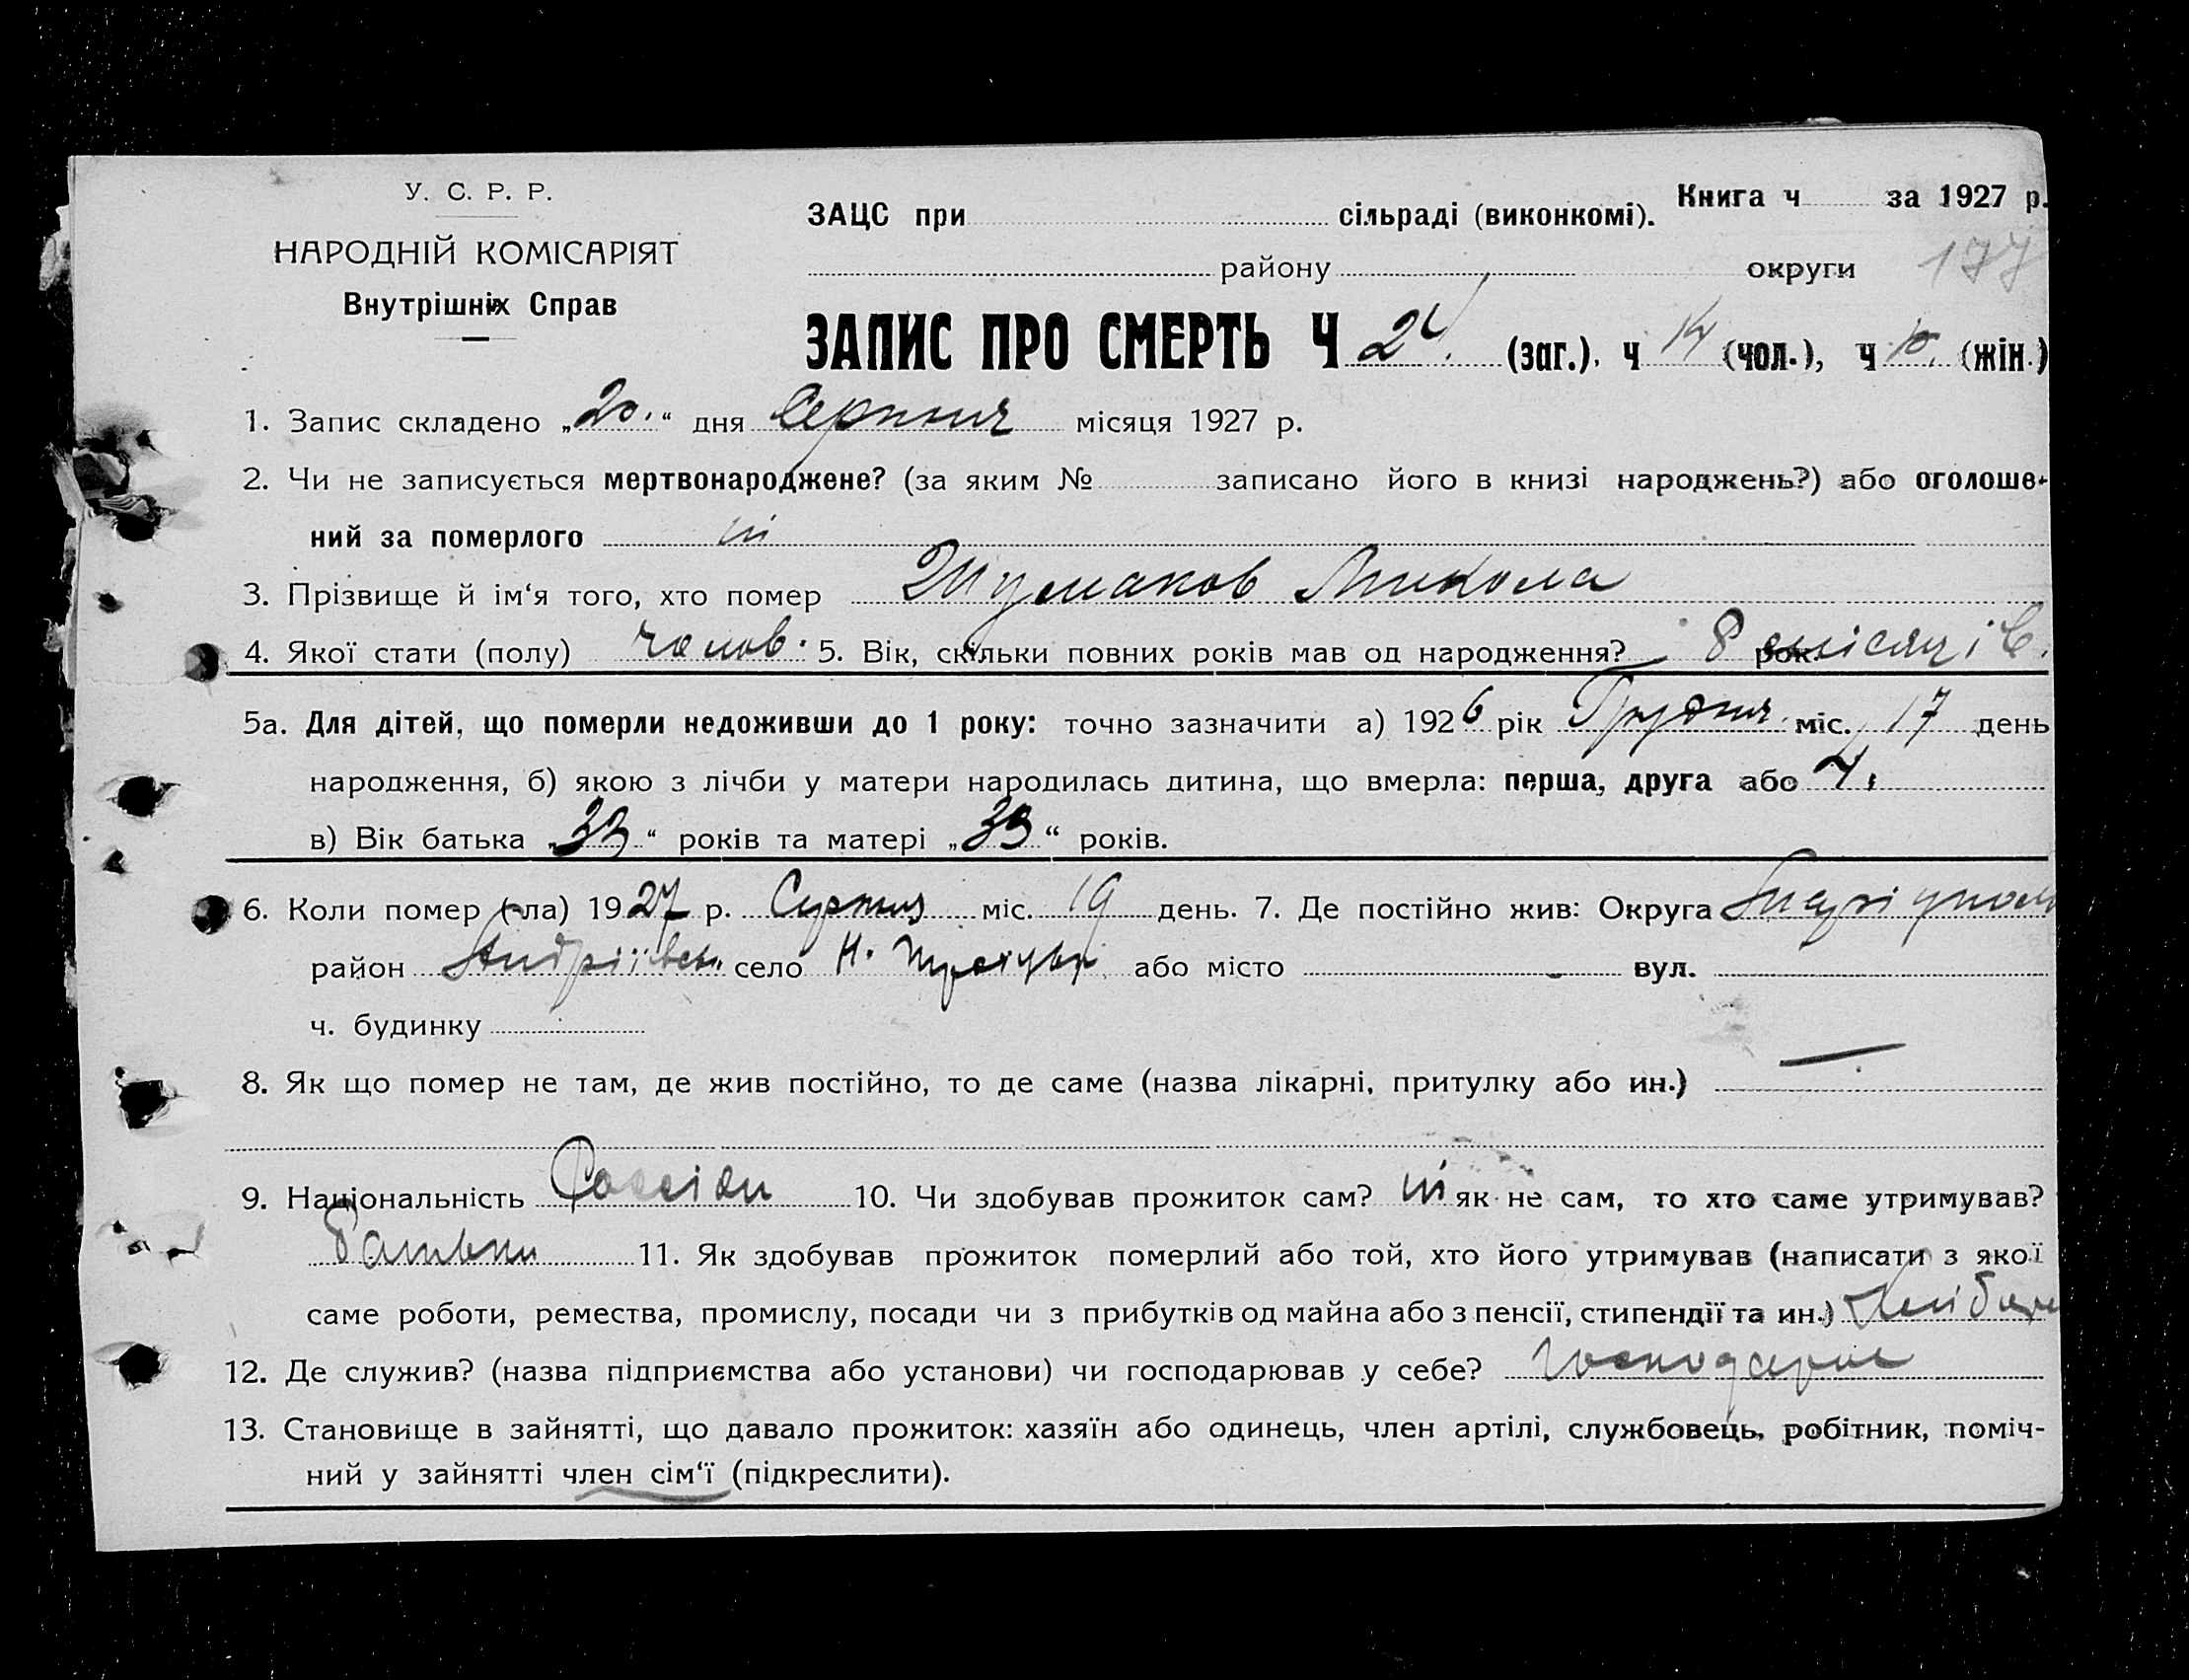 У. С. Р. Р.
НАРОДНІЙ КОМІСАРІЯТ
Внутрішніх Справ
ЗАЦС при сільраді (виконкомі).
Книга ч за 1927 р.
району округи 177
ЗАПИС ПРО СМЕРТЬ Ч 24. (заг.), ч 14 (чол.), ч 10. (жін.)
1. Запис складено „20.“ дня Серпня місяця 1927 р.
2. Чи не записується мертвонароджене? (за яким № записано його в книзі народжень?) або оголоше-
ний за померлого ні
3. Прізвище й ім‘я того, хто помер Шумаков Микола
4. Якої стати (полу) чолов. 5. Вік, скільки повних років мав од народження? 8 рок. місяців.
5а. Для дітей, що померли недоживши до 1 року: точно зазначити а) 1926 рік Грудня міс. 17 день
народження, б) якою з лічби у матери народилась дитина, що вмерла: перша, друга або 4.
в) Вік батька „33“ років та матері „33“ років.
6. Коли помер (-ла) 1927 р. Серпня міс. 19 день. 7. Де постійно жив: Округа Маріуполь
район Андріївськ. село Н. або місто вул.
ч. будинку
8. Як що помер не там, де жив постійно, то де саме (назва лікарні, притулку або ин.) —
9. Національність 10. Чи здобував прожиток сам? ні як не сам, то хто саме утримував?
батьки 11. Як здобував прожиток померлий або той, хто його утримував (написати з якої
саме роботи, ремества, промислу, посади чи з прибутків од майна або з пенсії, стипендії та ин.) Хлібор
12. Де служив? (назва підприємства або установи) чи господарював у себе?
13. Становище в зайнятті, що давало прожиток: хазяїн або одинець, член артілі, службовець, робітник, поміч-
ний у зайнятті член сім‘ї (підкреслити).